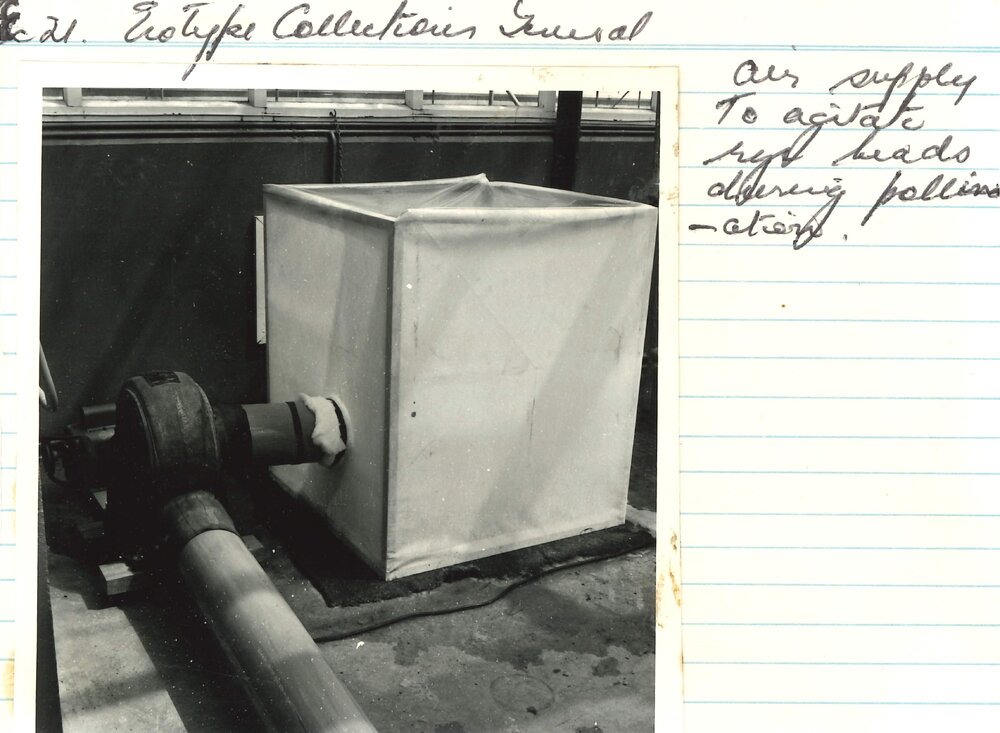 c 21. Ecotype Collections General
Air supply
To agitate
rye heads
during pollin
-ation.